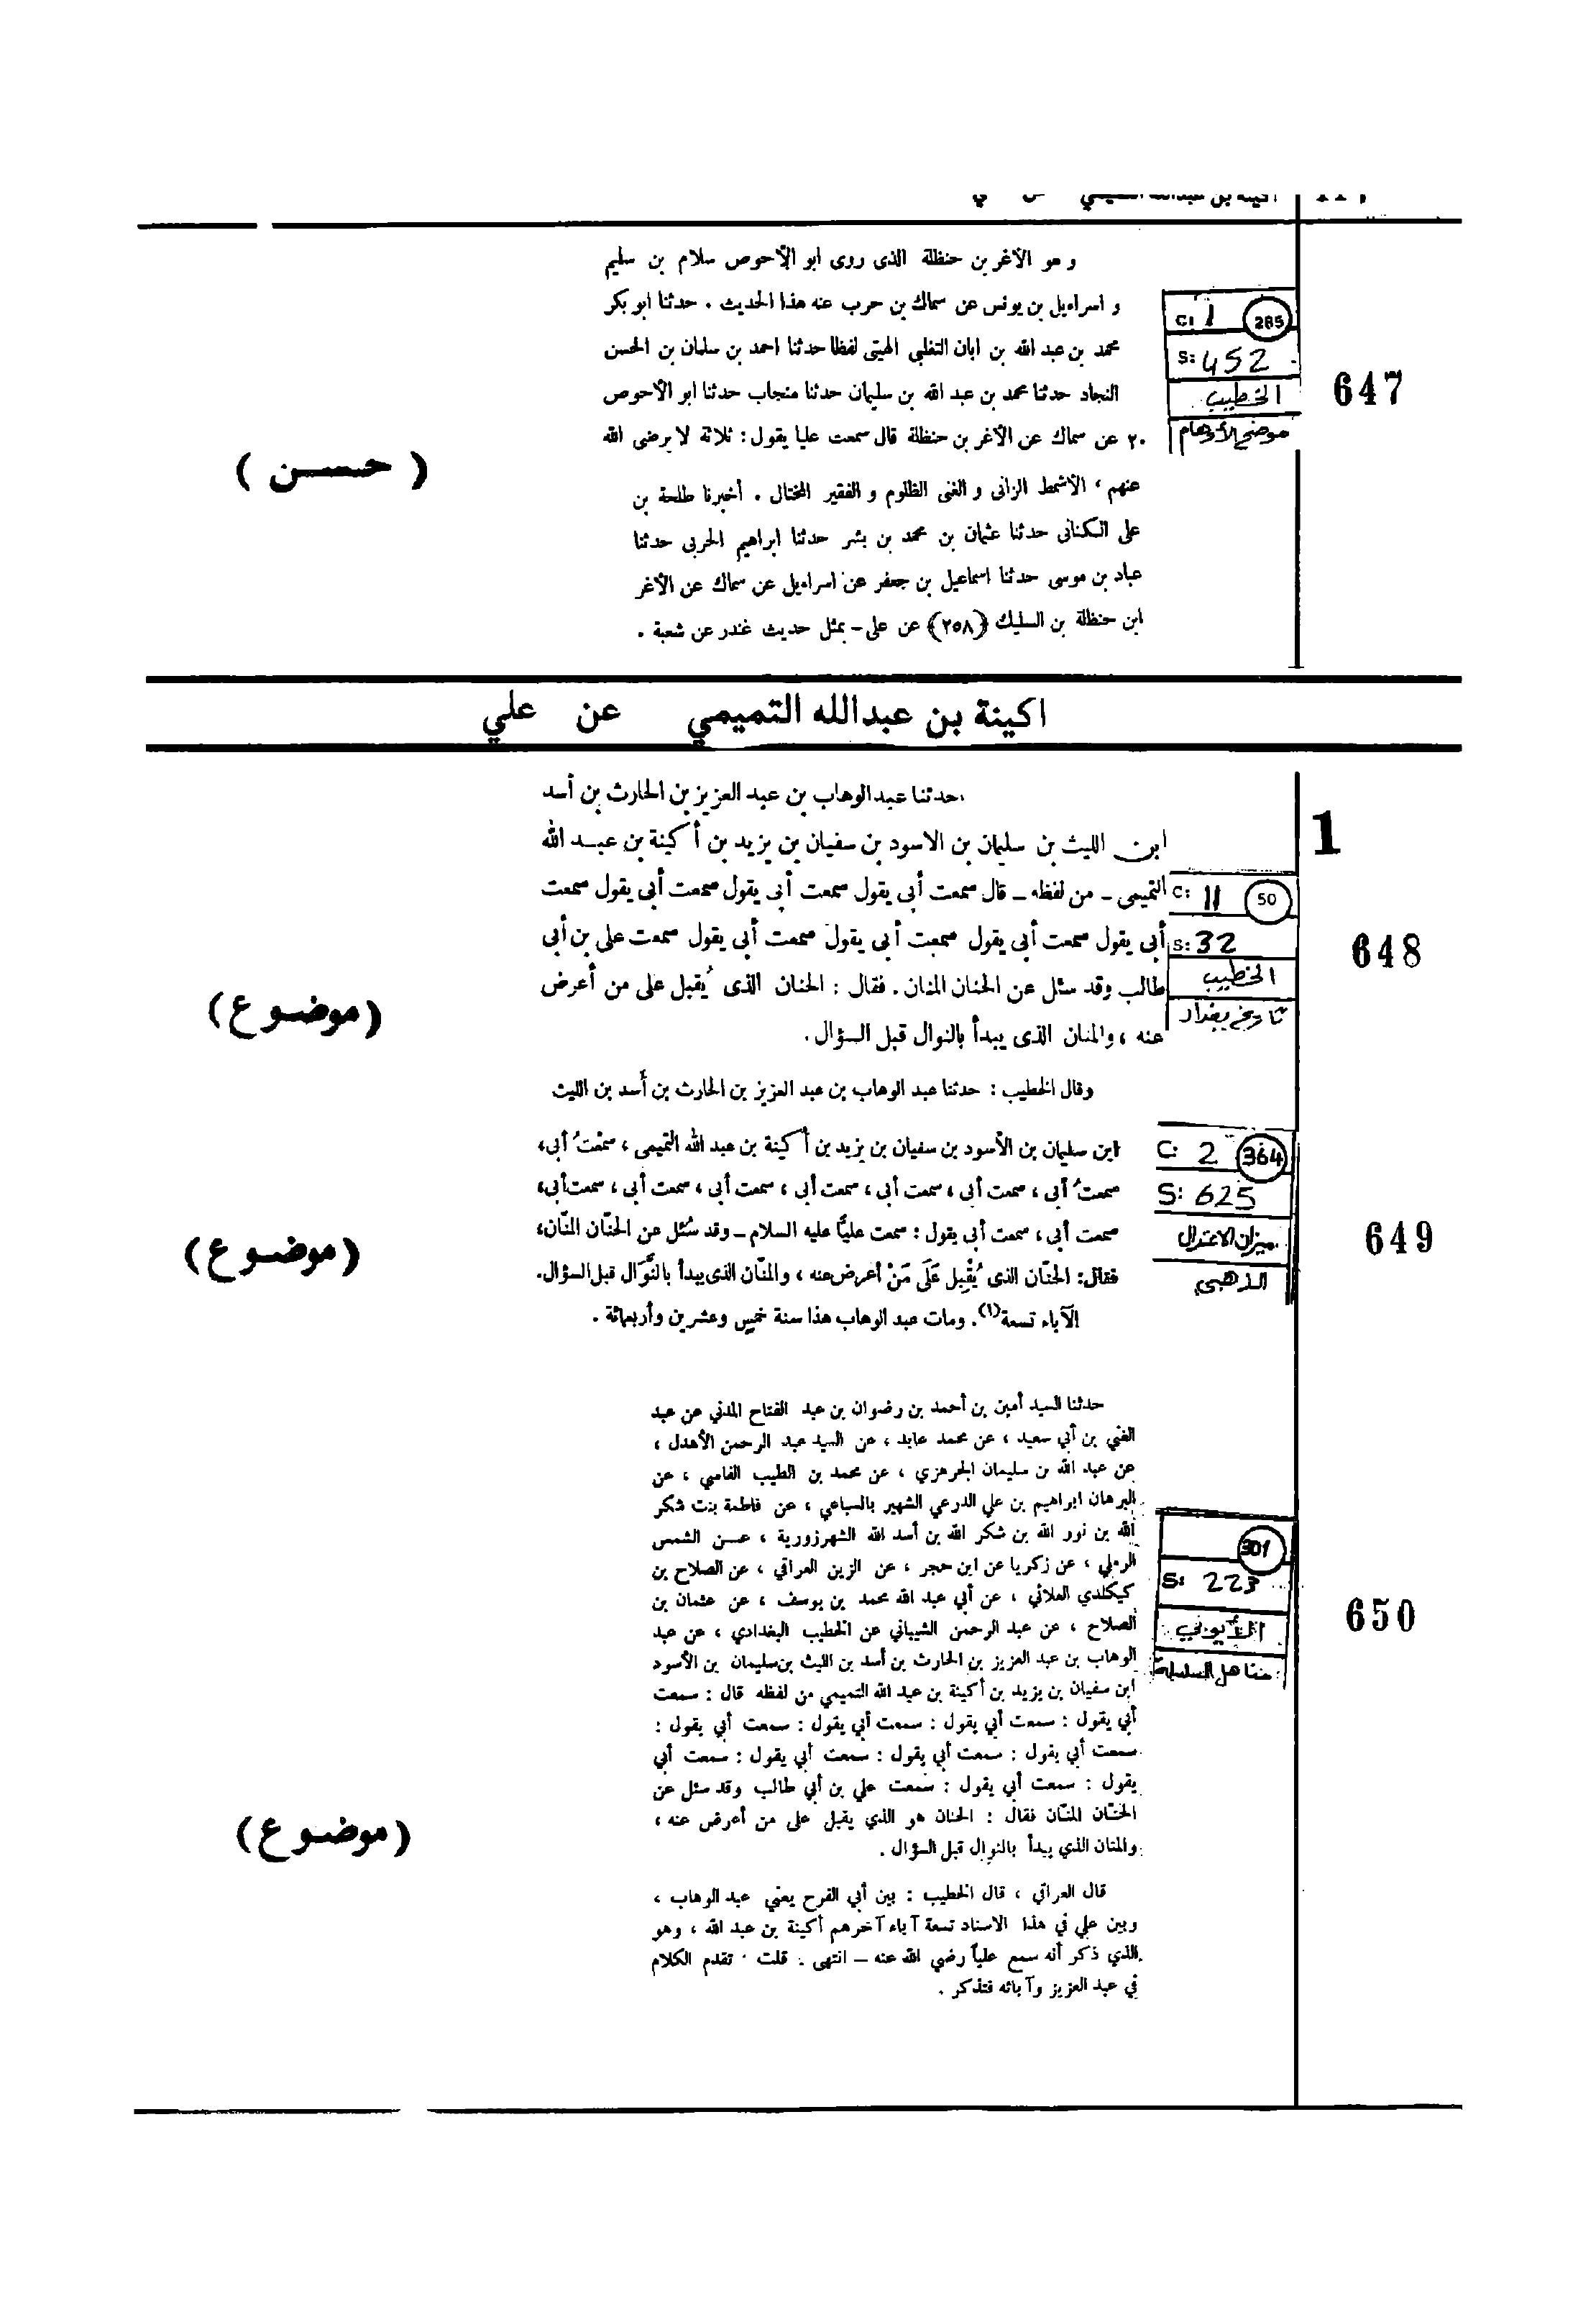 اكينة بن عبدالله التميمي عن علي
و هو الأغر بن حنظلة الذى روى ابو الأحوص سلام بن سليم
و اسراءيل بن يونس عن سماك بن حرب عنه هذا الحديث . حدثنا ابو بكر
محمد بن عبد الله بن ابان التغلبي الهيتى لفظا حدثنا احمد بن سلمان بن الحسن
النجاد حدثنا محمد بن عبد الله بن سليمان حدثنا منجاب حدثنا ابو الأحوص
٢٠ عن سماك عن الأغر بن حنظلة قال سمعت عليا يقول : ثلاثة لا يرضى الله
عنهم ، الأشمط الزانى و الغنى الظلوم و الفقير المختال . أخبرنا طلحة بن
على الكنانى حدثنا عثمان بن محمد بن بشر حدثنا ابراهيم الحربى حدثنا
عباد بن موسى حدثنا اسماعيل بن جعفر عن اسراءيل عن سماك عن الأغر
ابن حنظلة بن السليك (٢٥٨) عن على – بمثل حديث غندر عن شعبة .
C: 1 285
S: 452
الخطيب
موضح الأوهام
647
( حسن )
اكينة بن عبدالله التميمي عن علي
حدثنا عبد الوهاب بن عبد العزيز بن الحارث بن أسد
ابن الليث بن سليمان بن الاسود بن سفيان بن يزيد بن أكينة بن عبد الله
التميمى – من لفظه – قال سمعت أبى يقول سمعت أبى يقول سمعت أبى يقول سمعت
أبى يقول سمعت أبى يقول سمعت أبى يقول سمعت أبى يقول سمعت على بن أبى
طالب وقد سئل عن الحنان المنان . فقال : الحنان الذى يُقبل على من أعرض
عنه ، والمنان الذى يبدأ بالنوال قبل السؤال .
1
C: 11 50
S: 32
الخطيب
تاريخ بغداد
648
(موضوع)
وقال الخطيب : حدثنا عبد الوهاب بن عبد العزيز بن الحارث بن أسد بن الليث
ابن سليمان بن الأسود بن سفيان بن يزيد بن أكينة بن عبد الله التميمى ، سمعتُ أبى ،
سمعتُ أبى ، سمعت أبى ، سمعت أبى ، سمعت أبى ، سمعت أبى ، سمعت أبى ، سمعت أبى ،
سمعت أبى ، سمعت أبى يقول : سمعت عليًّا عليه السلام – وقد سُئل عن الحنّان المنّان ،
فقال : الحنّان الذى يُقْبِل عَلَى مَنْ أعرض عنه ، والمنّان الذى يبدأ بالنَّوَال قبل السؤال .
الآباء تسعة(١) . ومات عبد الوهاب هذا سنة خمس وعشرين وأربعمائة .
C: 2 364
S: 625
ميزان الاعتدال
الذهبي
649
(موضوع)
حدثنا السيد أمين بن أحمد بن رضوان بن عبد الفتاح المدني عن عبد
الغني بن أبي سعيد ، عن محمد عابد ، عن السيد عبد الرحمن الأهدل ،
عن عبد الله بن سليمان الجرهزي ، عن محمد بن الطيب الفاسي ، عن
البرهان ابراهيم بن علي الدرعي الشهير بالسباعي ، عن فاطمة بنت شكر
الله بن نور الله بن شكر الله بن أسد الله الشهرزورية ، عن الشمس
الرملي ، عن زكريا عن ابن حجر ، عن الزين العراقي ، عن الصلاح بن
كيكلدي العلائي ، عن أبي عبد الله محمد بن يوسف ، عن عثمان بن
الصلاح ، عن عبد الرحمن الشيباني عن الخطيب البغدادي ، عن عبد
الوهاب بن عبد العزيز بن الحارث بن أسد بن الليث بن سليمان بن الأسود
ابن سفيان بن يزيد بن أكينة بن عبد الله التميمي من لفظه قال : سمعت
أبي يقول : سمعت أبي يقول : سمعت أبي يقول : سمعت أبي يقول :
سمعت أبي يقول : سمعت أبي يقول : سمعت أبي يقول : سمعت أبي
يقول : سمعت أبي يقول : سمعت علي بن أبي طالب وقد سئل عن
الحنّان المنّان فقال : الحنان هو الذي يقبل على من أعرض عنه ،
والمنان الذي يبدأ بالنوال قبل السؤال .
قال العراقي ، قال الخطيب : بين أبي الفرح يعني عبد الوهاب ،
وبين علي في هذا الاسناد تسعة آباء آخرهم أكينة بن عبد الله ، وهو
الذي ذكر أنه سمع علياً رضي الله عنه – انتهى . قلت . تقدم الكلام
في عبد العزيز وآبائه فتذكر .
301
S: 223
الأيوبي
مناهل السلسلة
650
(موضوع)